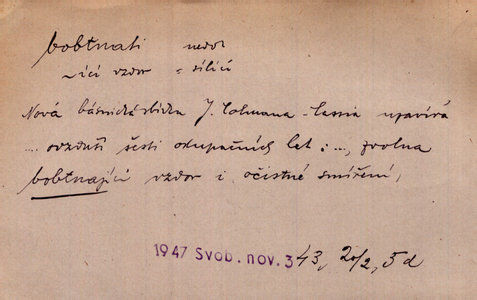 bobtnati nedok
~ící vzdor = sílící
Nová básnická sbírka J. Colmana-Cassia uzavírá
... ovzduší šesti okupačních let: ..., zvolna
bobtnající vzdor i očistné smíření,
1947 Svob. nov. 3 43, 20/2, 5d